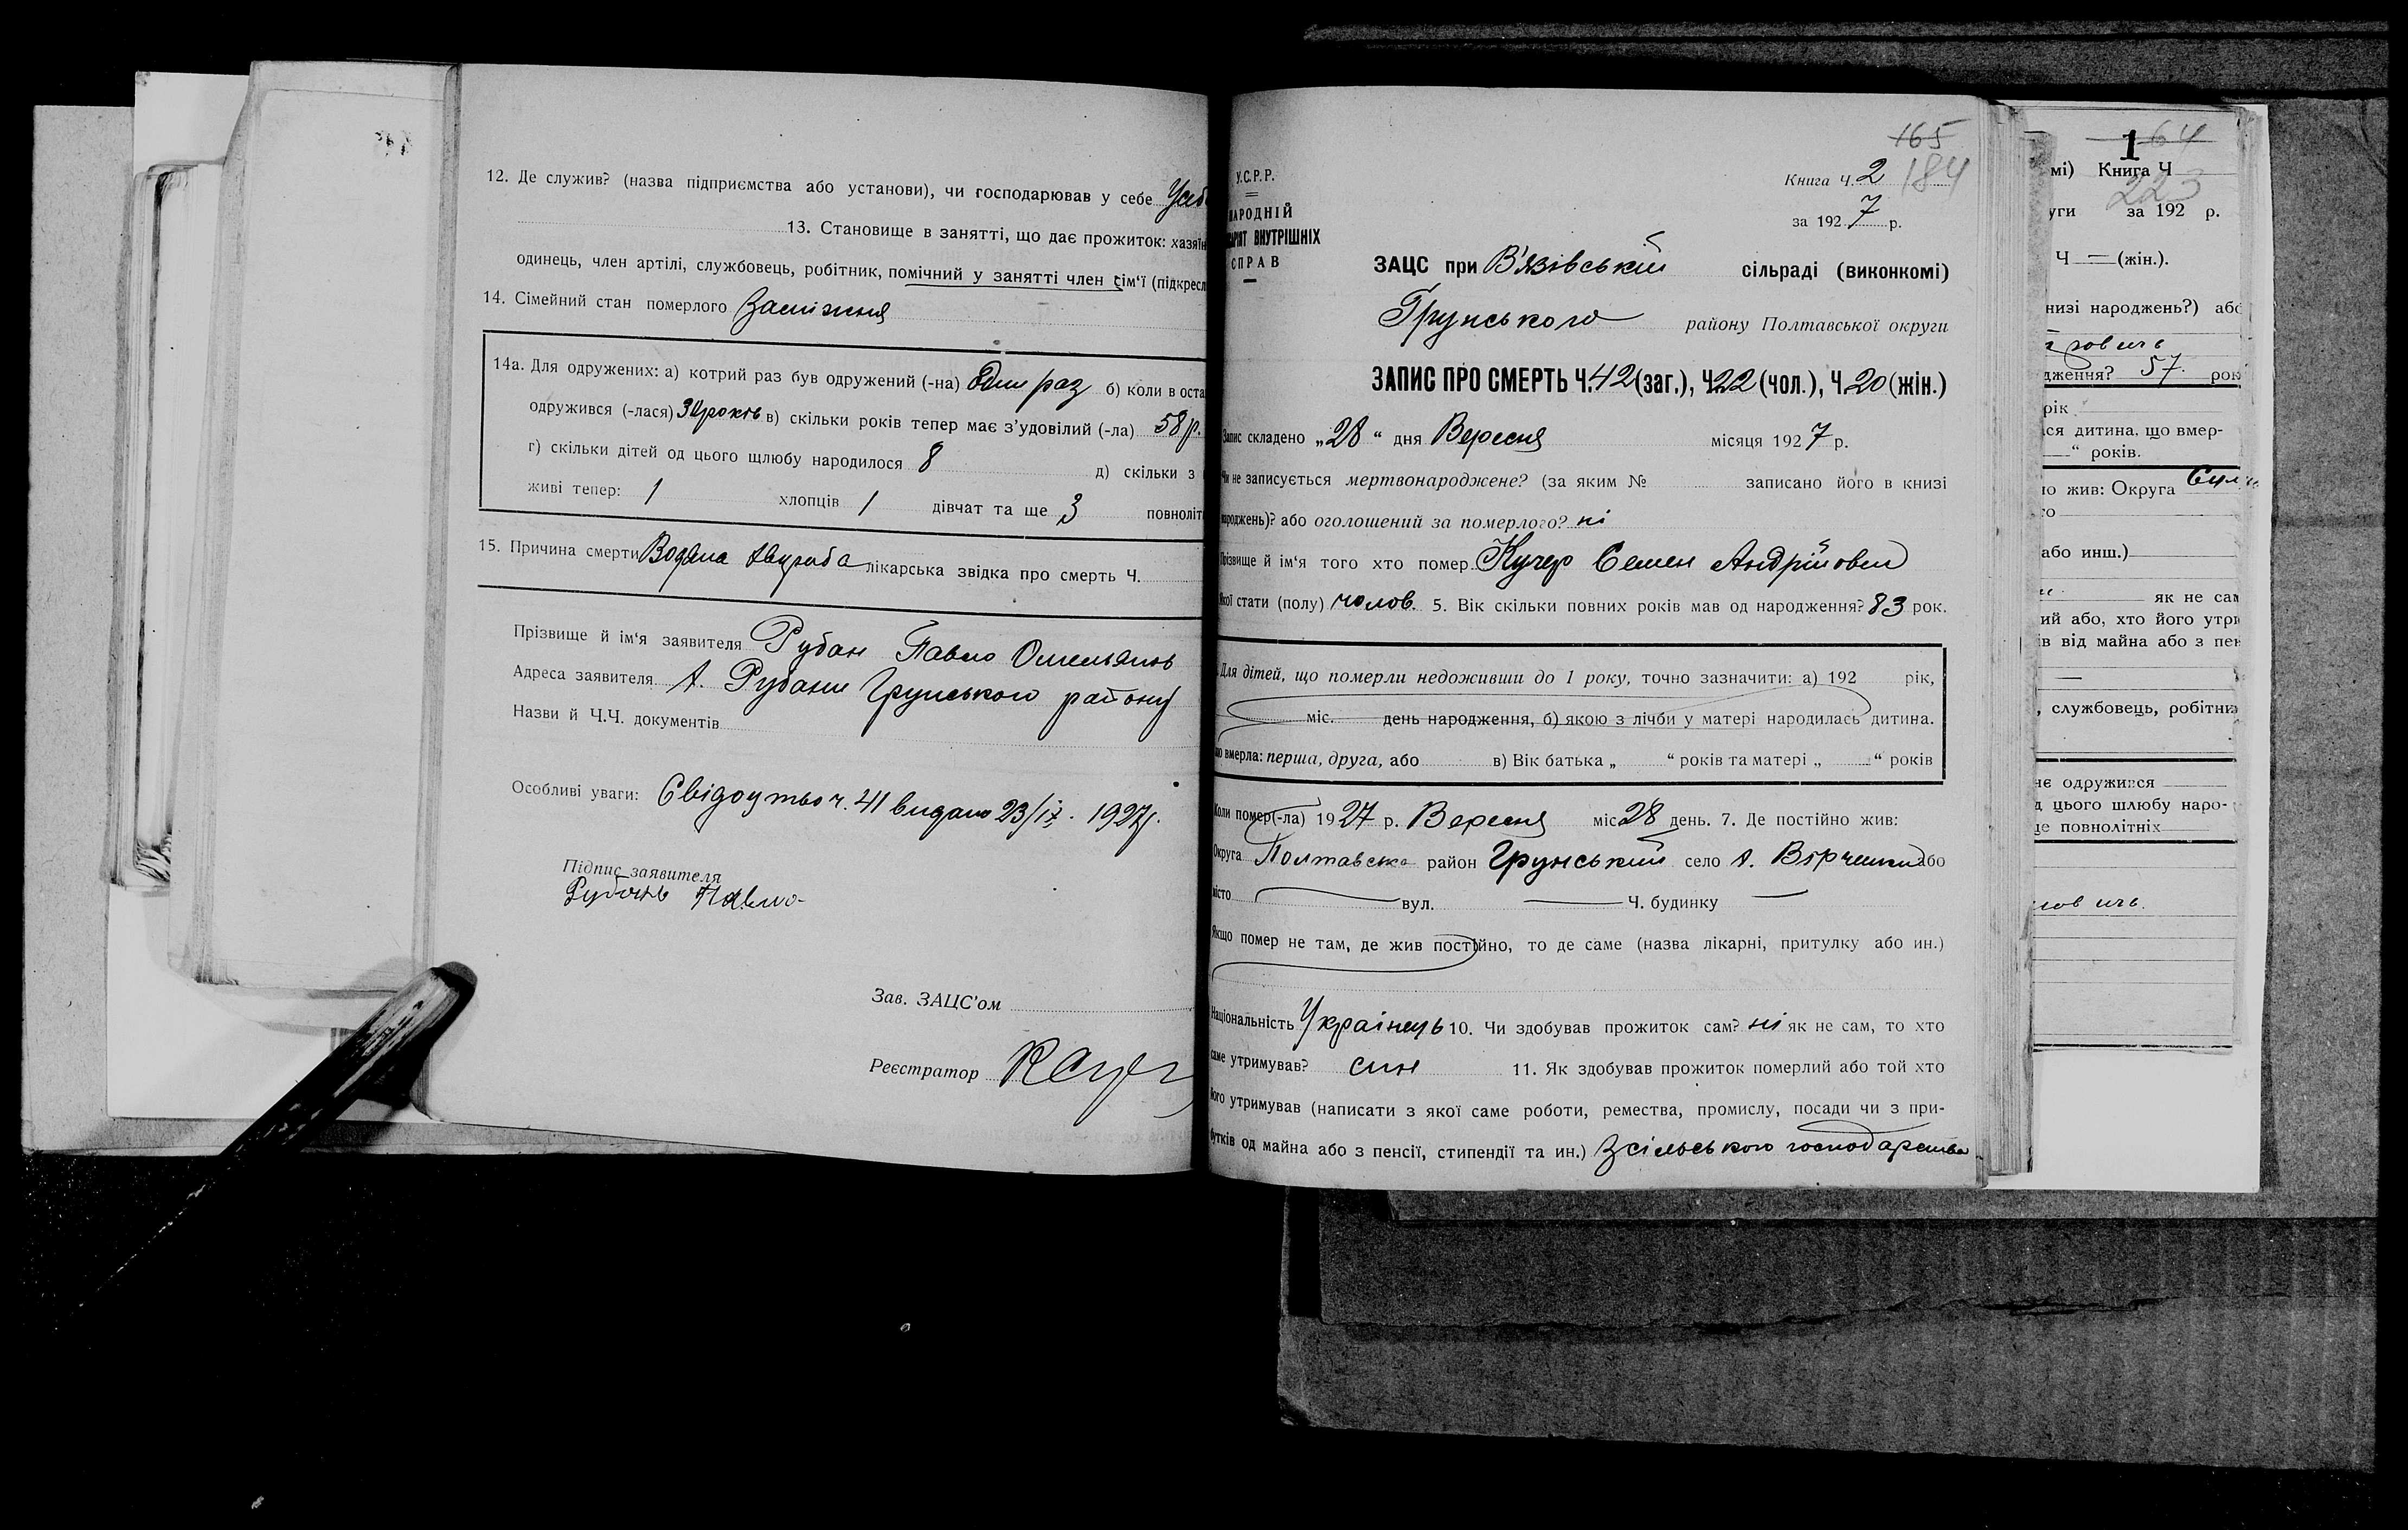 12. Де служив? (назва підприємства або установи), чи господарював у себе
13. Становище в занятті, що дає прожиток: хазяїн
одинець, член артілі, службовець, робітник, помічний у занятті член сім‘ї (підкресл
14. Сімейний стан померлого Заміжня
14а. Для одружених: а) котрий раз був одружений (-на) один раз б) коли в оста
одружився (-лася) років в) скільки років тепер має з’удовілий (-ла) 58 р.
г) скільки дітей од цього щлюбу народилося 8 д) скільки з
живі тепер: 1 хлопців 1 дівчат та ще 3 повноліт
15. Причина смерти Водяна лікарська звідка про смерть Ч.
Прізвище й ім‘я заявителя Рубан Павло Омельянов
Адреса заявителя х. Рубани Грунського району
Назви й Ч.Ч. документів
Особливі уваги: Свідоцтво ч. 41 видано 23/ІХ. 1927 р.
Підпис заявителя
Рубань Павло
Зав. ЗАЦС’ом
Реєстратор
165
184
У.С.Р.Р.
НАРОДНІЙ
ВНУТРІШНІХ
СПРАВ
Книга Ч. 2
за 1927 р.
ЗАЦС при В'язівській сільраді (виконкомі)
Грунського району Полтавської округи
ЗАПИС ПРО СМЕРТЬ Ч. 42 (заг.), Ч. 22 (чол.), Ч. 20 (жін.)
Запис складено „28“ дня Вересня місяця 1927 р.
Чи не записується мертвонароджене? (за яким № записано його в книзі
народжень)? або оголошений за померлого? ні
Прізвище й ім‘я того хто помер Кучер Семен Андрійович
Якої стати (полу) чолов. 5. Вік скільки повних років мав од народження? 83 рок.
Для дітей, що померли недоживши до 1 року, точно зазначити: а) 192 рік,
міс. день народження, б) якою з лічби у матері народилась дитина.
що вмерла: перша, друга, або в) Вік батька „ “ років та матері „ “ років
Коли помер(-ла) 1927 р. Вересня міс 28 день. 7. Де постійно жив:
Округа Полтавська район Грунський село х. або
місто вул. Ч. будинку
Якщо помер не там, де жив постійно, то де саме (назва лікарні, притулку або ин.)
Національність Українець 10. Чи здобував прожиток сам? ні як не сам, то хто
саме утримував? син 11. Як здобував прожиток померлий або той хто
його утримував (написати з якої саме роботи, ремества, промислу, посади чи з при-
бутків од майна або з пенсії, стипендії та ин.) З сільського господарства
1 64
мі) Книга Ч
223
уги за 192 р.
Ч — (жін.).
низі народжень?) або
ович
дження? 57 рок
рік
ся дитина, що вмер-
“ років.
о жив: Округа
го
або инш.)
як не сам
ий або, хто його утри
ів від майна або з пен
, службовець, робітни
не одружився
д цього шлюбу наро-
ще повнолітніх